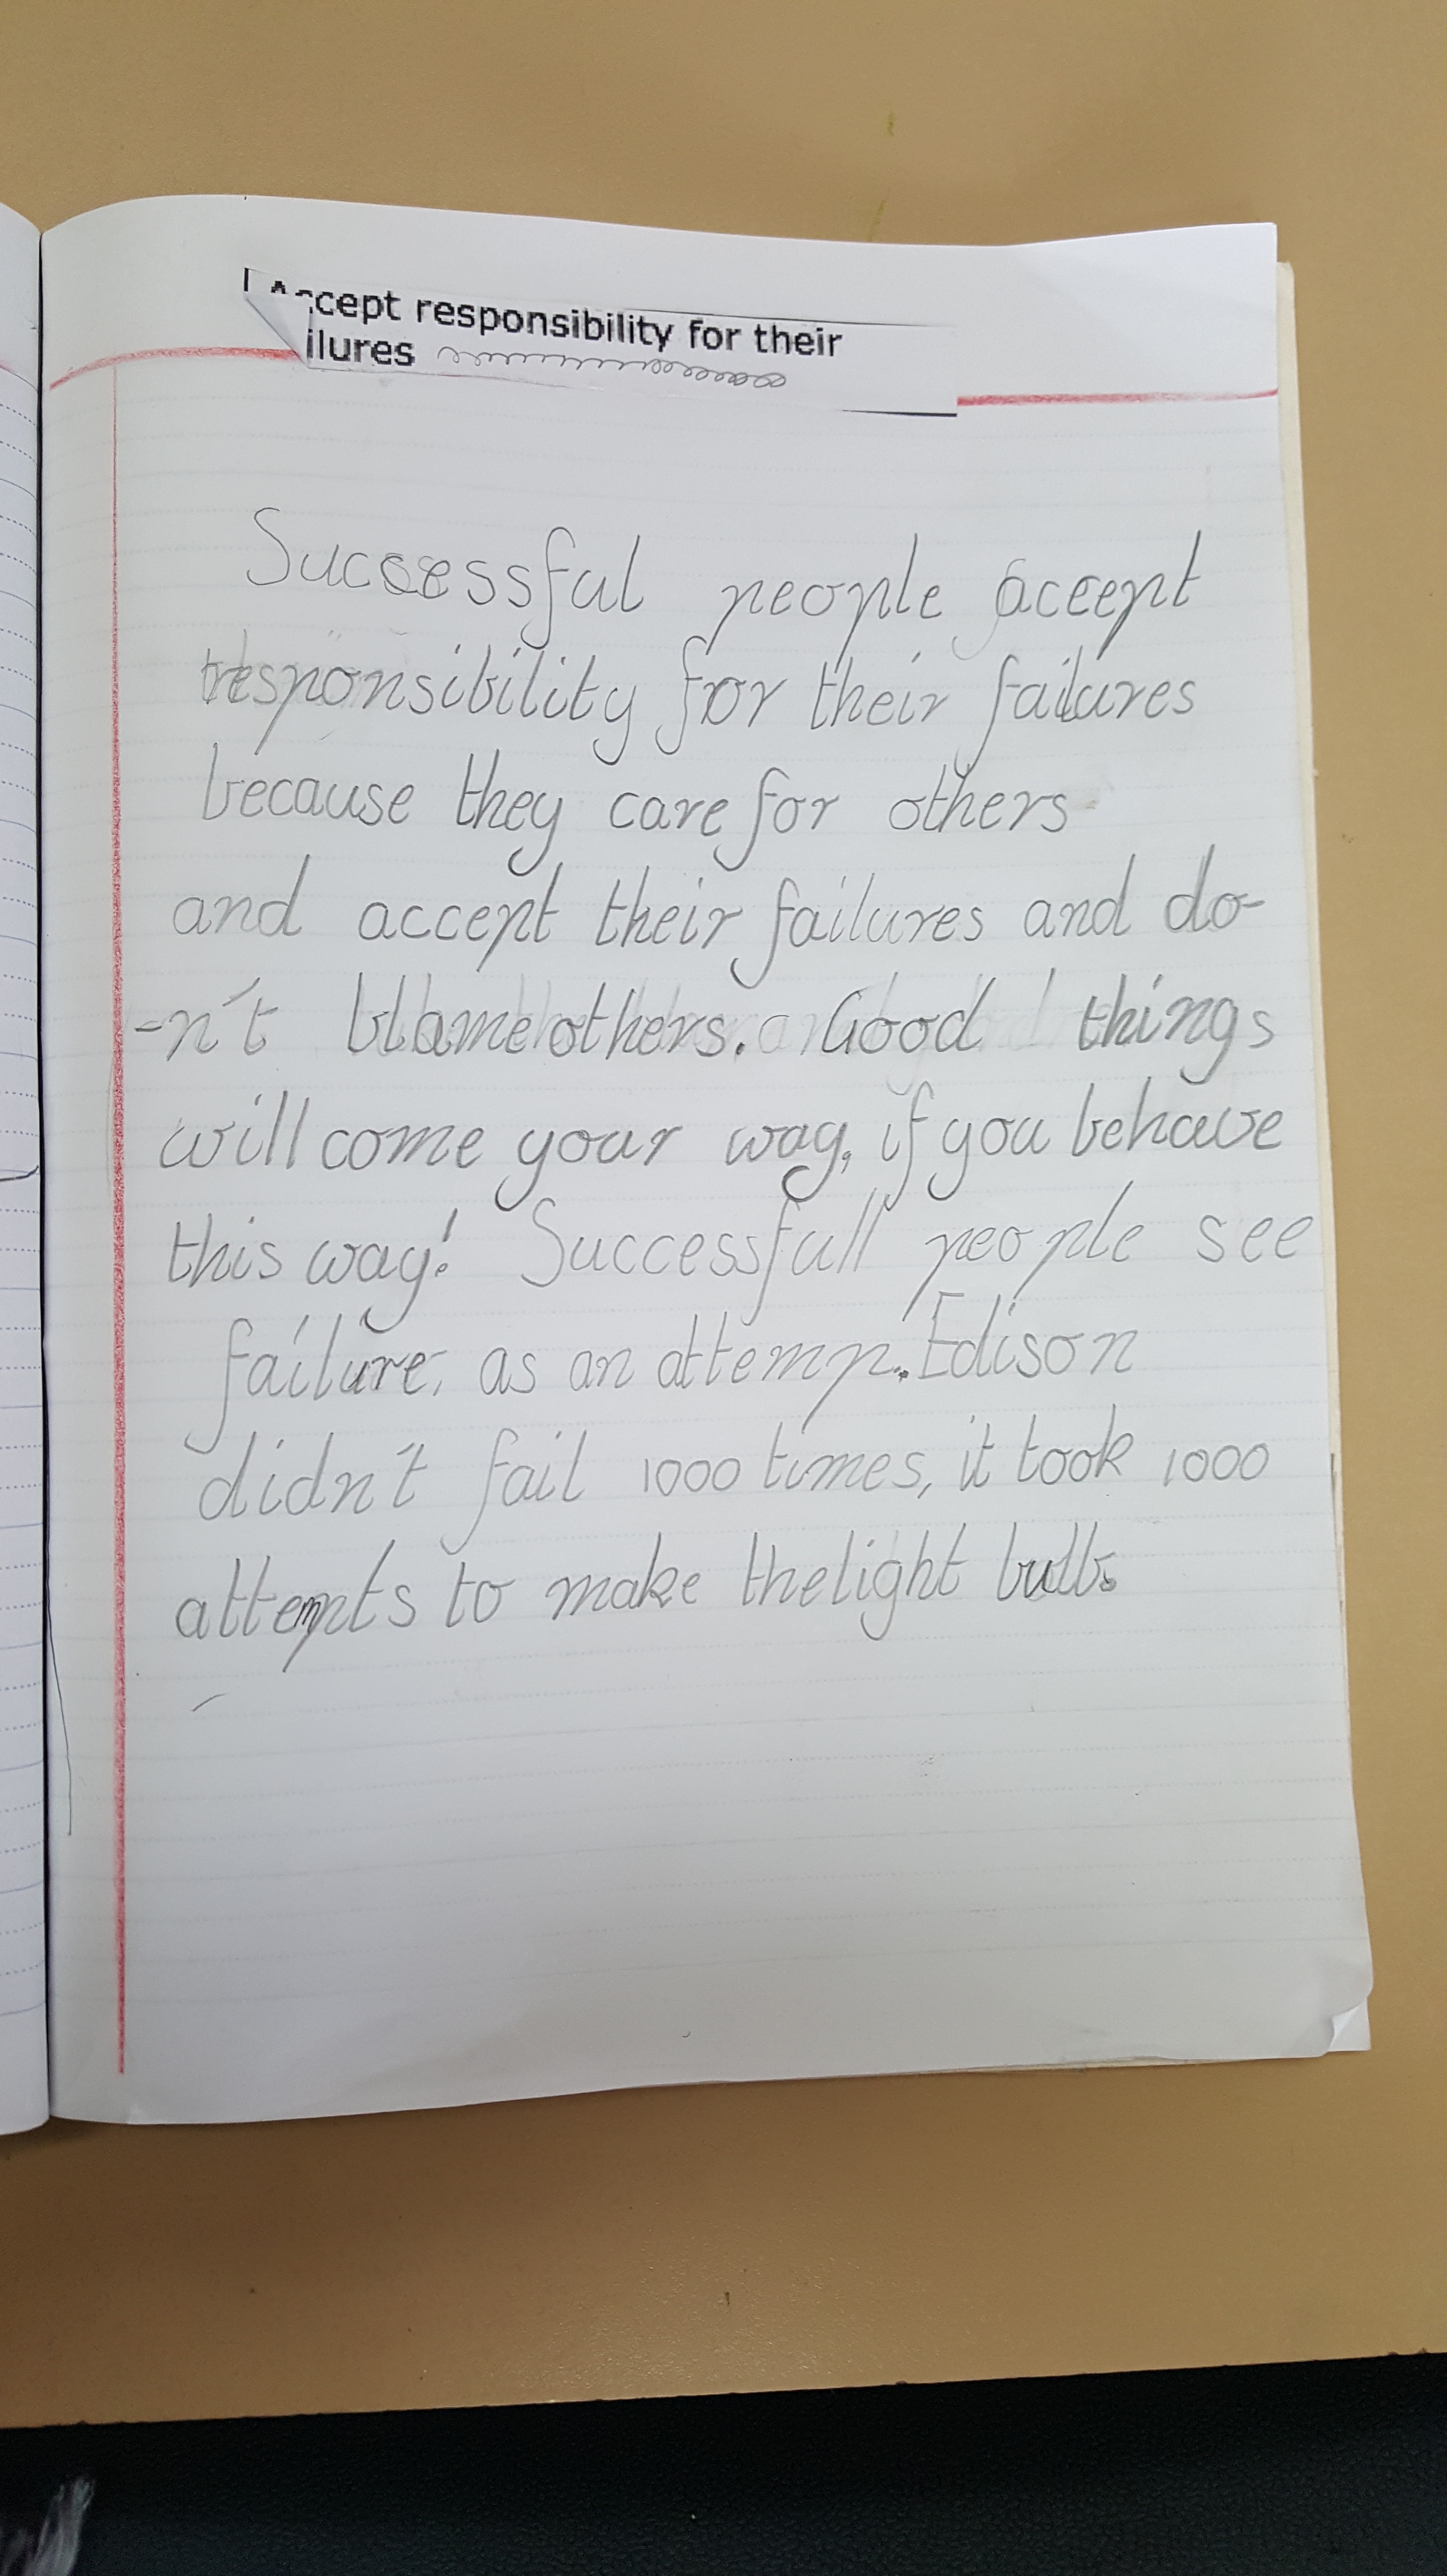 Accept responsibility for their
ilures
Successful people accept
responsibility for their failures
because they care for others
and accept their failures and do-
-n't blame others. Good things
will come your way, if you behave
this way! Successfull people see
failure, as an attemp. Edison
didn't fail 1000 times, it took 1000
attempts to make the light bulb.